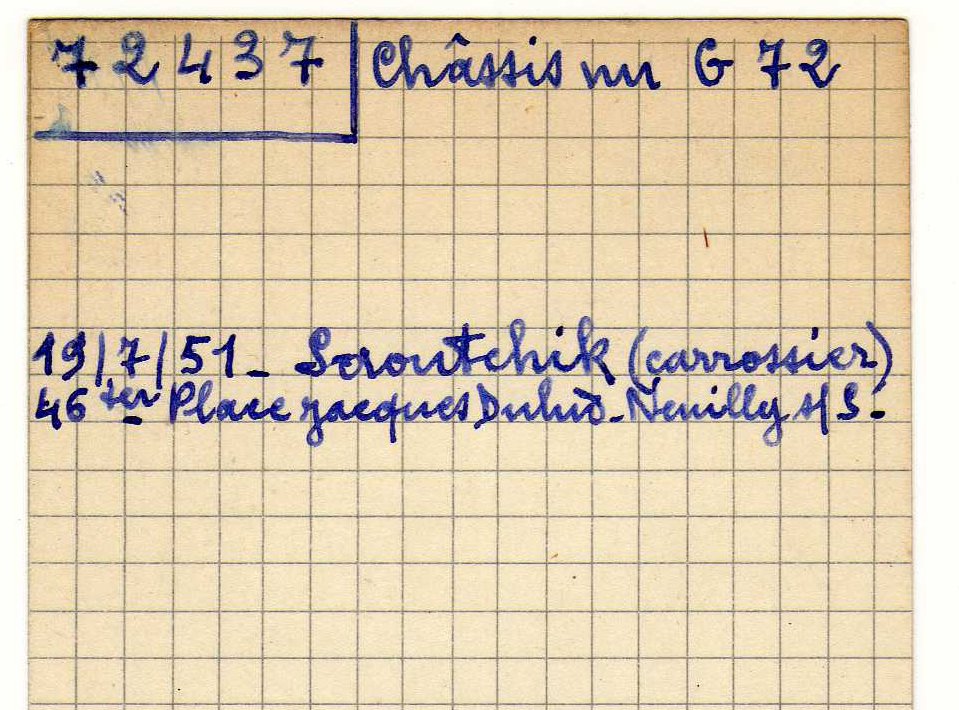 72437 Châssis nu G 72
19/7/51_ Saoutchik (carrossier)
46 ter Place Jacques Dulud_Neuilly s/S-